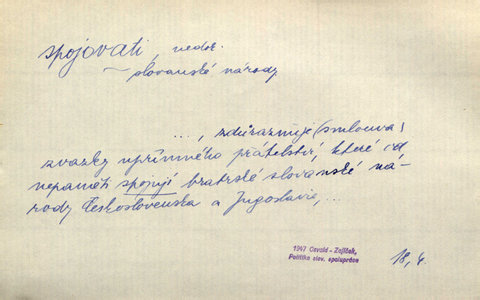 spojovati, nedok.
~ slovanské národy
..., zdůrazňuje (smlouva)
svazky upřímného přátelství, které od
nepaměti spojují bratrské slovanské ná-
rody Československa a Jugoslavie, ...
1947 Osvald - Zajíček,
Politika slov. spolupráce
18, 4.